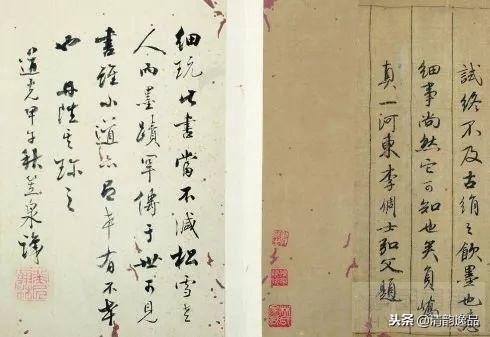 試終不及古絹之飲墨也
細事尚然它可知也矣負
真一河東李倜士弘父題
細玩此書當不減松雪老
人而墨蹟罕傳于世可見
書雖小道亦有幸有不幸
也丹陛其珎之
道光甲午秋泉識
头条 @清韵逸品